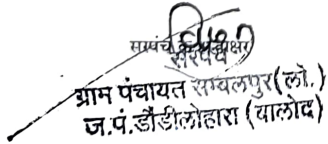 सरपंच के हस्ताक्षर
सरपंच
ग्राम पंचायत सम्बलपुर (लो.)
ज.पं.डौंडीलोहारा (बालोद)